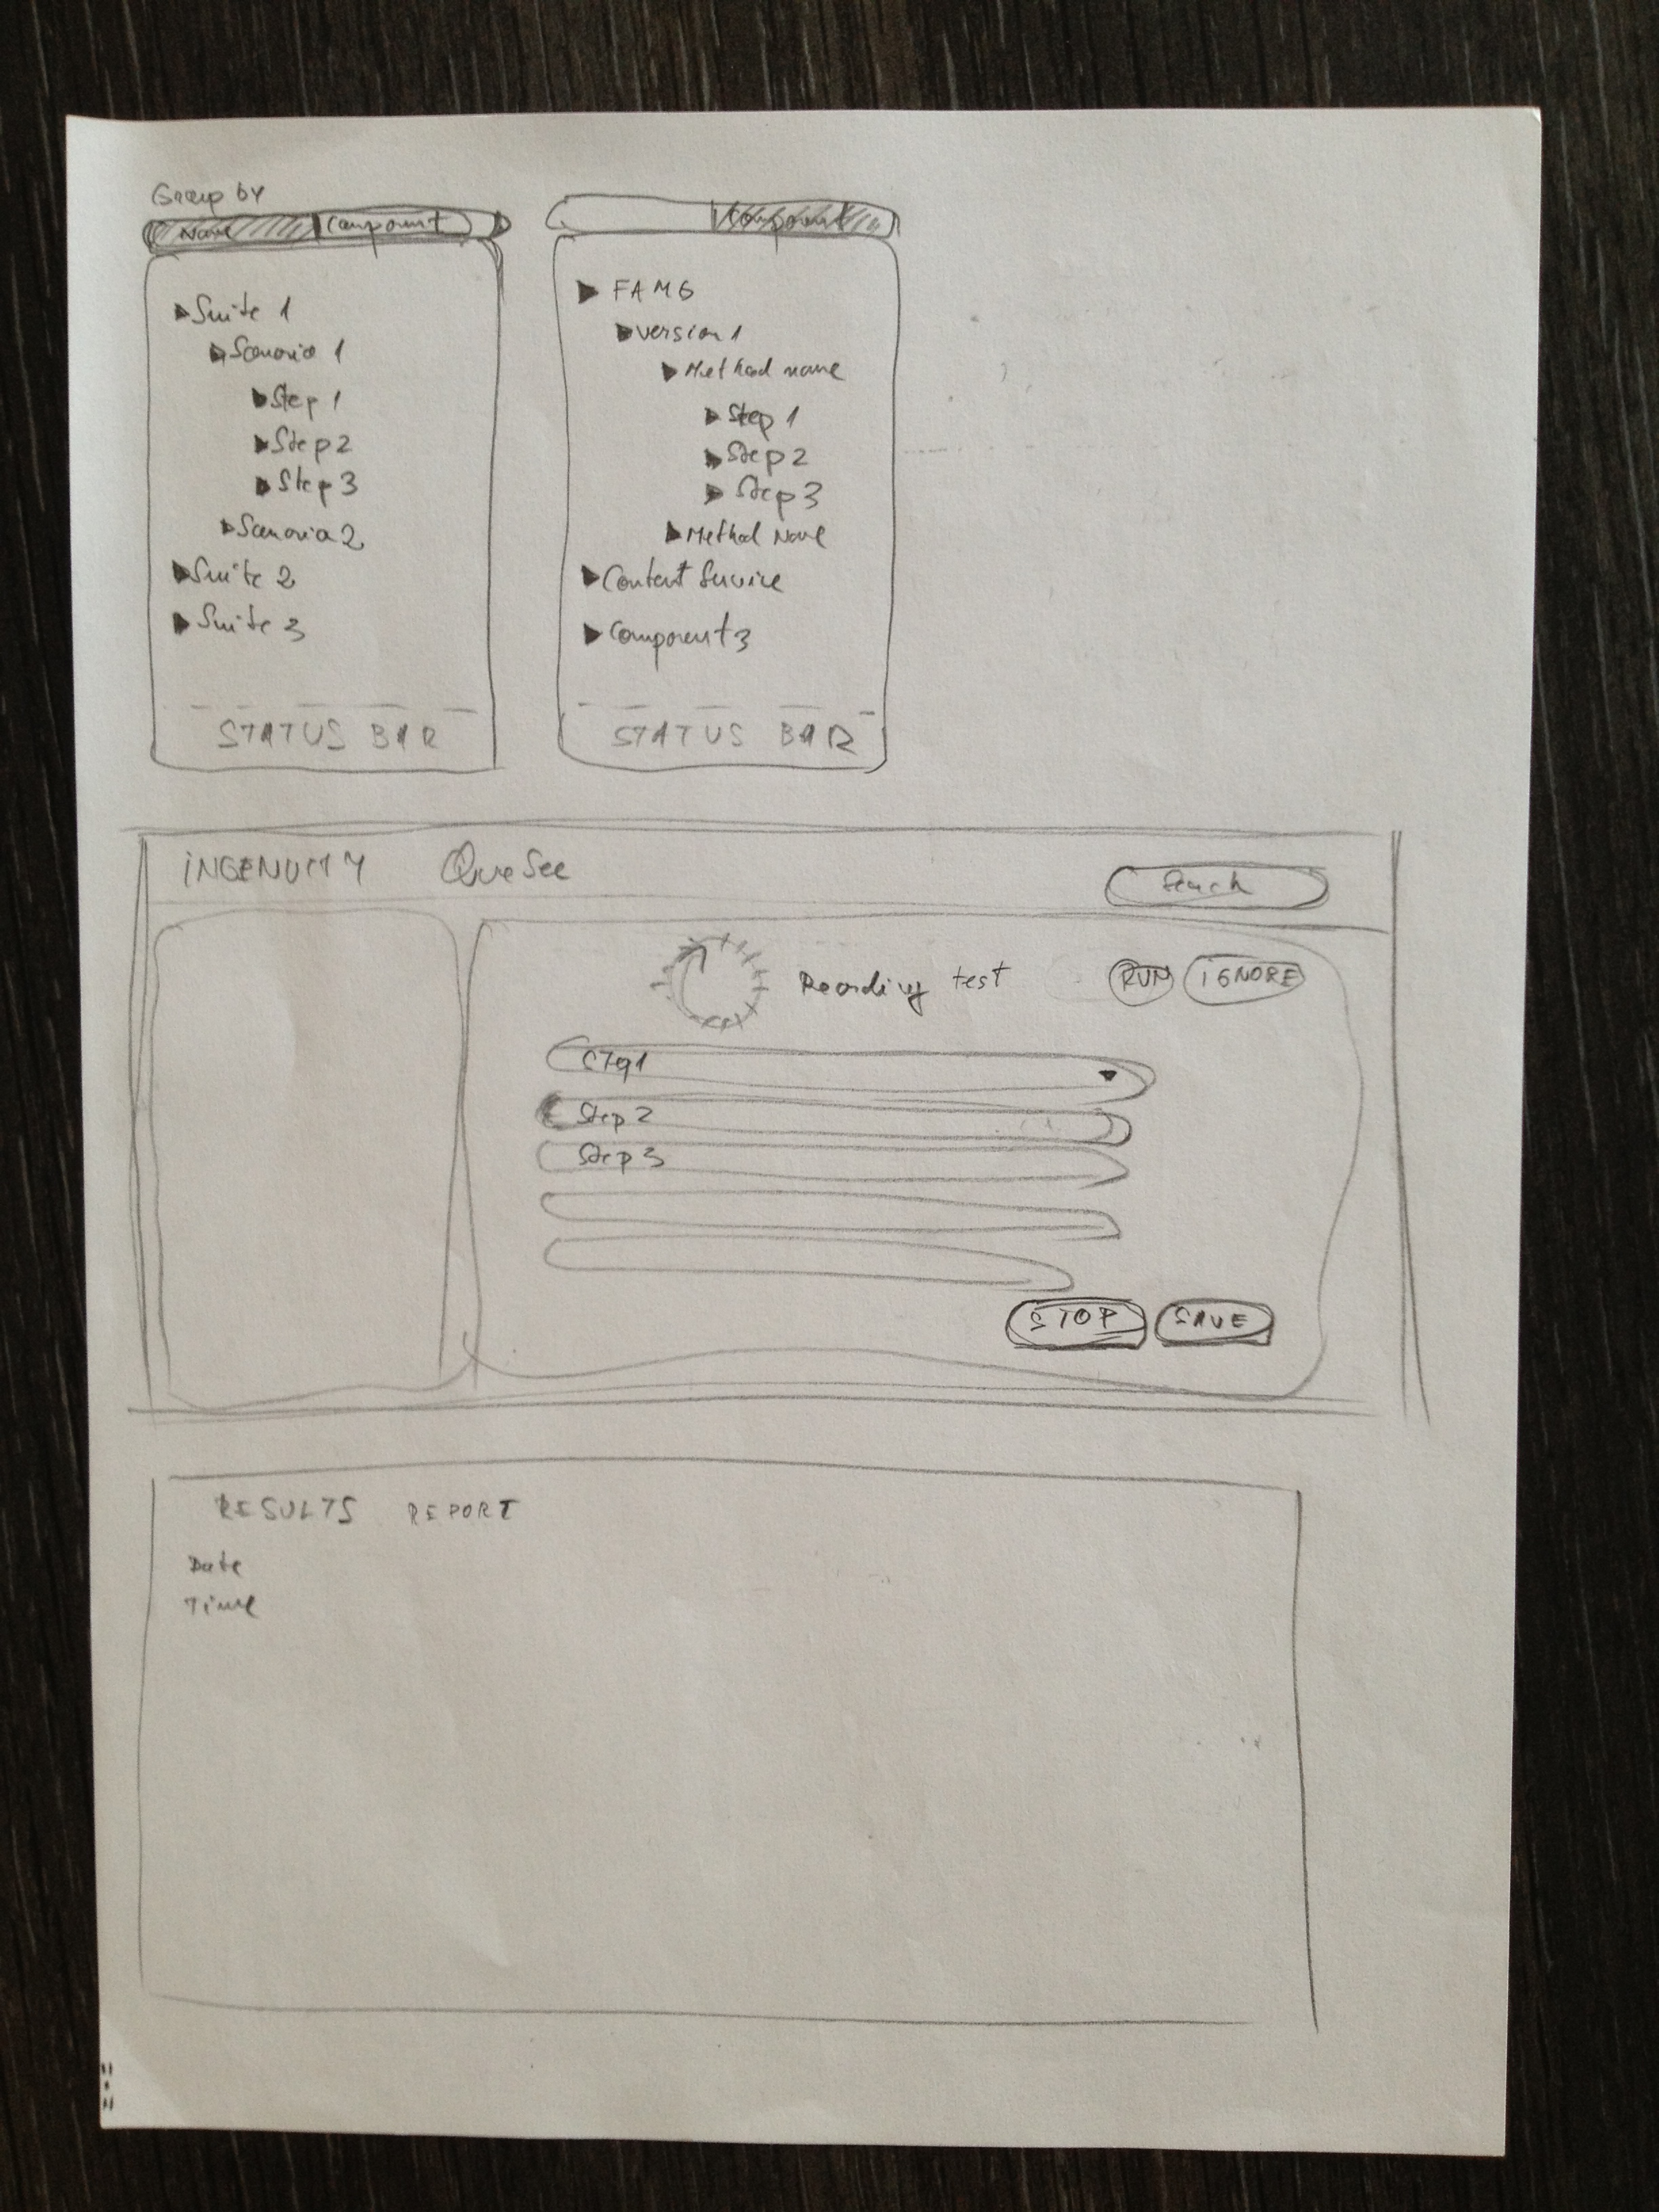 Group by
Name Component
Suite 1
Scenario 1
Step 1
Step 2
Step 3
Scenario 2
Suite 2
Suite 3
STATUS BAR
Component
FAMG
Version 1
Method name
Step 1
Step 2
Step 3
Method Name
Content Service
Component 3
STATUS BAR
INGENUITY QueSee Search
Recording test RUN IGNORE
Step 1
Step 2
Step 3
STOP SAVE
RESULTS REPORT
Date
Time